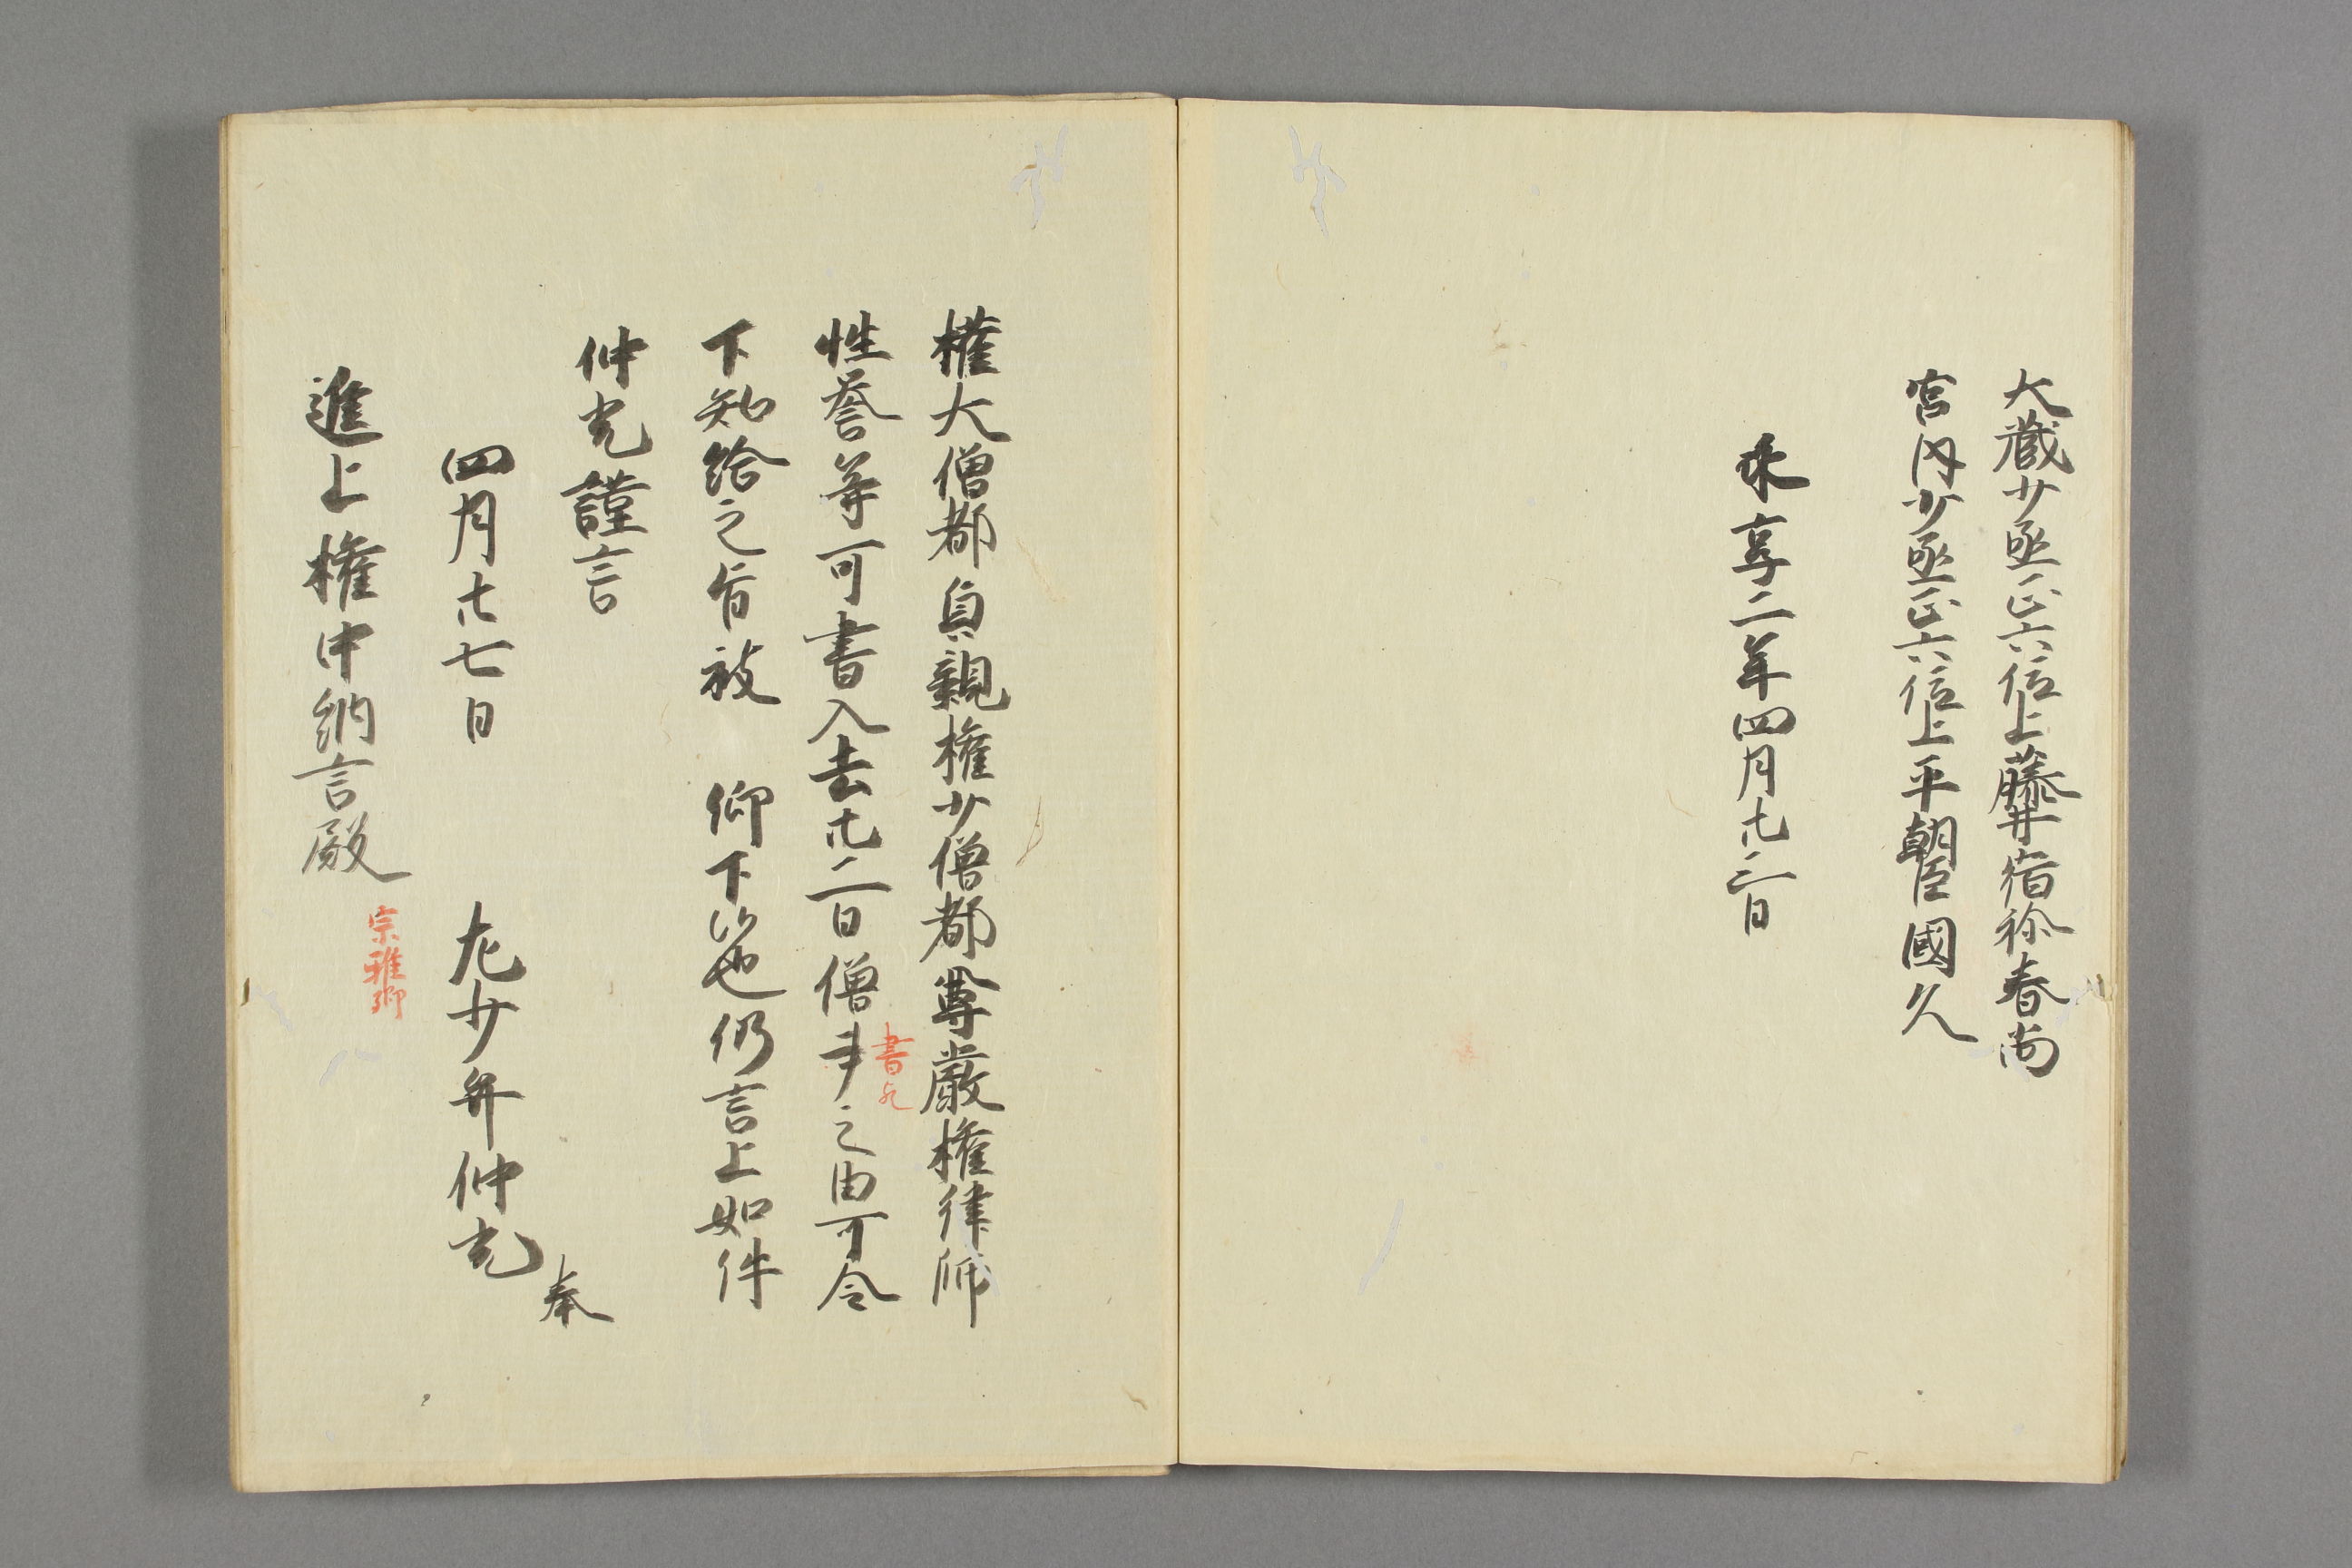 大蔵少丞正六位上藤井宿祢春尚
宮内少丞正六位上平朝臣國久
永享二年四月廿二日
権大僧都貞親権少僧都尊嚴権律師
性誉等可書入去廿二日僧事之由可令
書
下知給之旨被 仰下候也仍言上如件
仲光謹言
四月廿七日 左少弁仲光奉
進上権中納言殿
宗雅卿